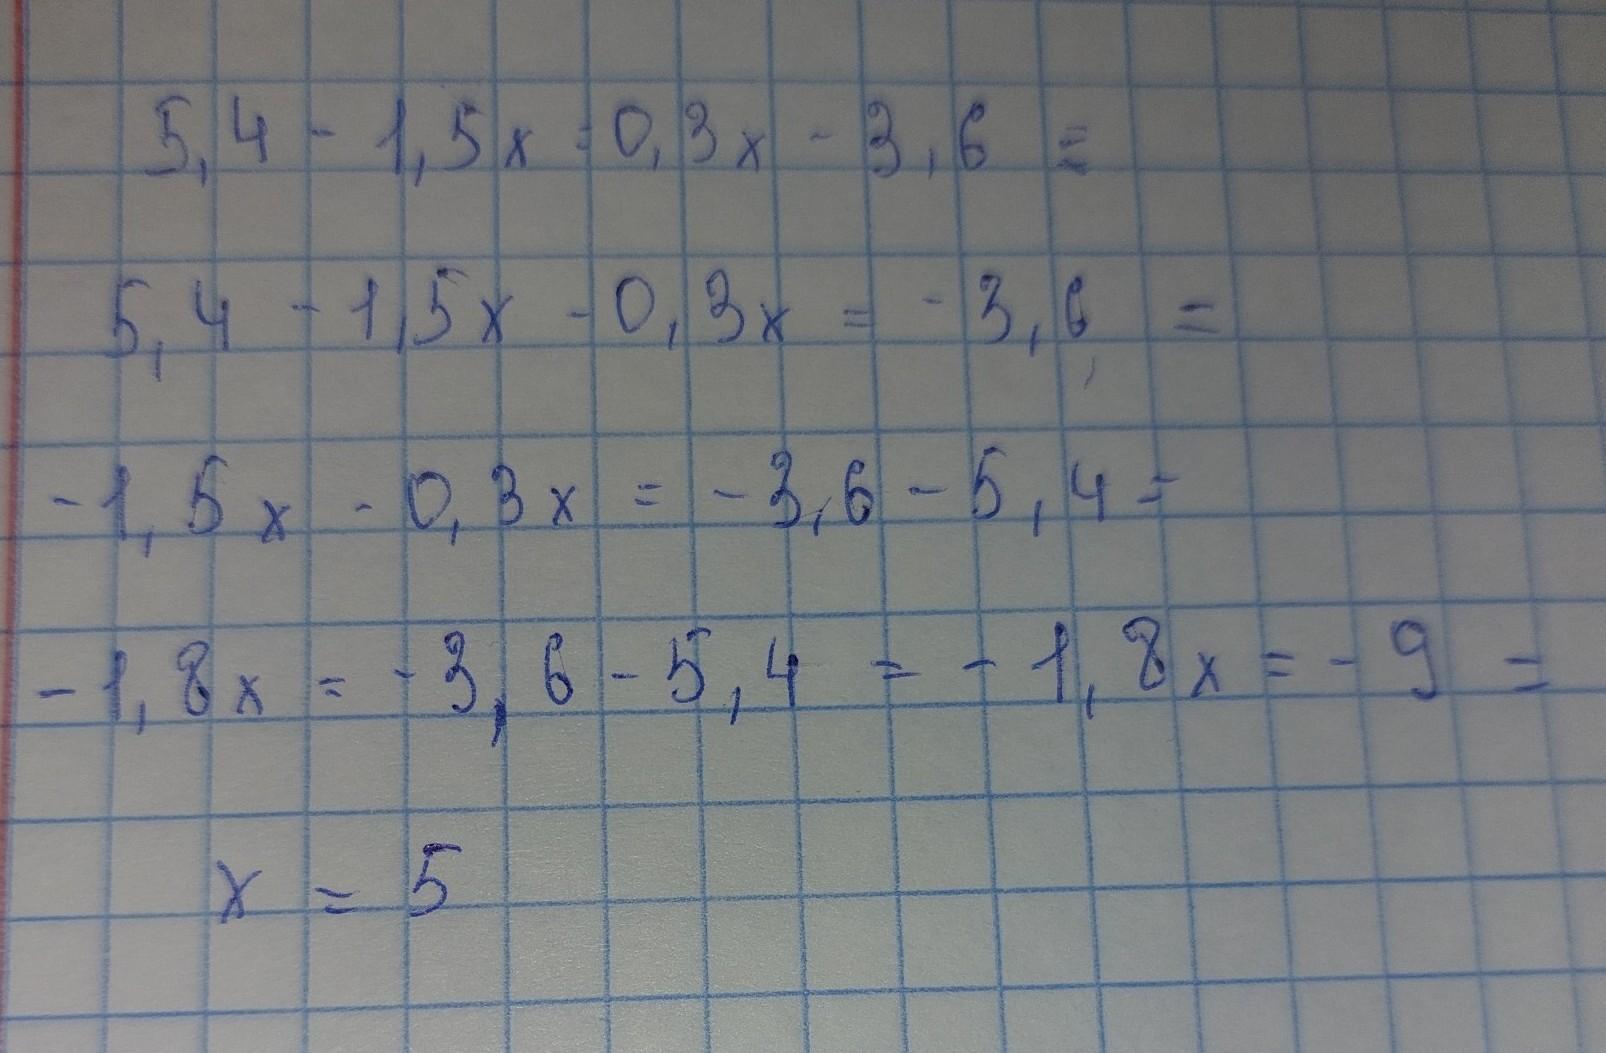 5,4 - 1,5x = 0,3x - 3,6 =
5,4 - 1,5x - 0,3x = - 3,6 =
- 1,5x - 0,3x = - 3,6 - 5,4 =
- 1,8x = - 3,6 - 5,4 = - 1,8x = - 9 =
x = 5